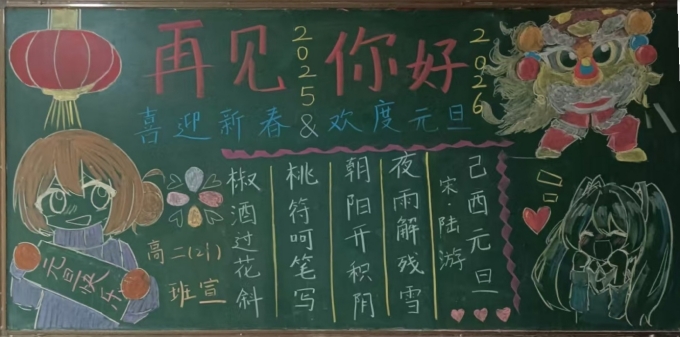 再见 2025 你好 2026
喜迎新春&欢度元旦
己酉元旦
宋·陆游
夜雨解残雪
朝阳开积阴
桃符呵笔写
椒酒过花斜
高二(21)
班宣
元旦快乐